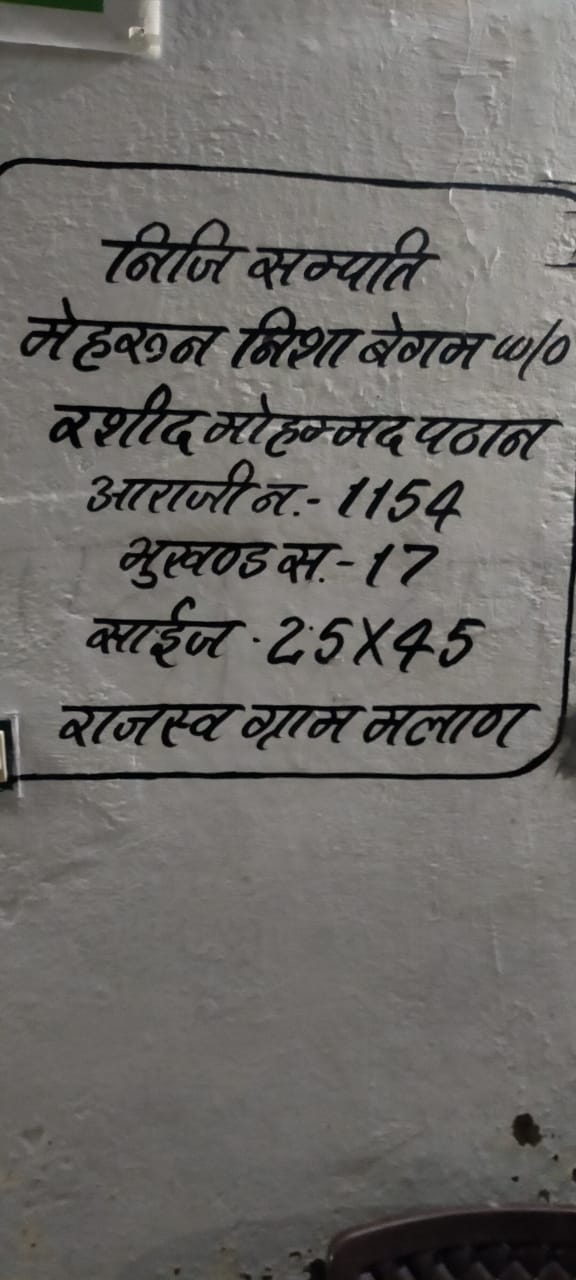 निजि सम्पति
मेहरून निशा बेगम w/o
रशीद मोहम्मद पठान
आराजी न.- 1154
भुखण्ड स.- 17
साईज - 25X45
राजस्व ग्राम मलाण